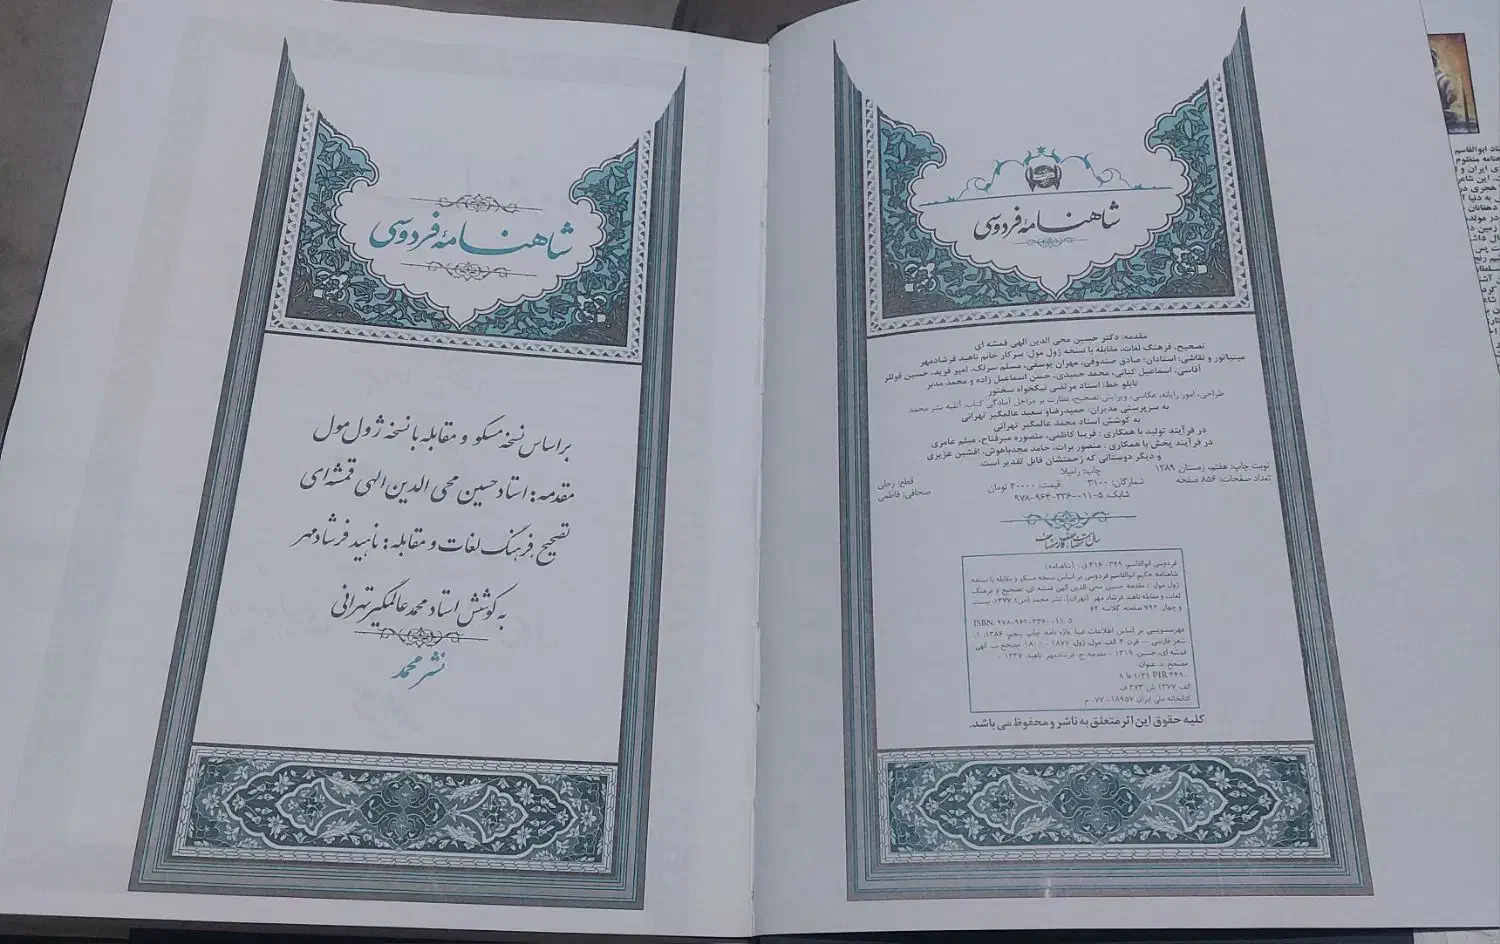 شاهنامهٔ فردوسی
مقدمه: دکتر حسین محی الدین الهی قمشه ای
تصحیح، فرهنگ لغات، مقابله با نسخه ژول مول: سرکار خانم ناهید فرشادمهر
مینیاتور و نقاشی: استادان: صادق صندوقی، مهران یوسفی، مسلم سرلک، امیر فرید، حسین فوللر
آقاسی، اسماعیل کیانی، محمد حمیدی، حسن اسماعیل زاده و محمد مدبر
تابلو خط: استاد مرتضی نیکخواه سخنور
طراحی، امور رایانه، عکاسی، ویرایش، تصحیح، نظارت بر مراحل آمادگی کتاب: آتلیه نشر محمد
به سرپرستی مدیران: حمیدرضا و سعید عالمگیر تهرانی
به کوشش استاد محمد عالمگیر تهرانی
در فرآیند تولید با همکاری: فریبا کاظمی، منصوره میرفتاح، میثم عامری
در فرآیند پخش با همکاری: منصور برات، حامد مجدباهوش، افشین عزیزی
و دیگر دوستانی که زحمتشان قابل تقدیر است.
نوبت چاپ: هفتم، زمستان ۱۳۸۹ چاپ: رامیلا قطع: رحلی
تعداد صفحات: ۸۵۶ صفحه شمارگان: ۳۱۰۰ قیمت: ۴۰۰۰۰ تومان صحافی: فاطمی
شابک: ۵-۰۱۱-۳۳۶-۹۶۴-۹۷۸
فردوسی ابوالقاسم، ۳۲۹-۴۱۶ ق. [شاهنامه]
شاهنامه حکیم ابوالقاسم فردوسی بر اساس نسخه مسکو و مقابله با نسخه
ژول مول: مقدمه حسین محی الدین الهی قمشه ای، تصحیح و فرهنگ
لغات و مقابله ناهید فرشاد مهر [تهران]، نشر محمد (ص)، ۱۳۷۷، بیست
و چهار، ۷۹۲ صفحه،
ISBN: ۹۷۸-۹۶۴-۳۳۶-۰۱۱-۵
فهرستنویسی بر اساس اطلاعات فیپا. واژه نامه. چاپ پنجم، ۱۳۸۶. ۱.
شعر فارسی — قرن ۴. الف. مول، ژول ۱۸۷۶ - ۱۸۰۰. مصحح ب. الهی
قمشه ای، حسین، ۱۳۱۹ - مقدمه. ج. فرشادمهر، ناهید، ۱۳۴۷ -
مصحح. د. عنوان
PIR ۴۴۹۰
کتابخانه ملی ایران ۱۸۹۵۷-۷۷ م
کلیه حقوق این اثر متعلق به ناشر و محفوظ می باشد.
شاهنامهٔ فردوسی
بر اساس نسخه مسکو و مقابله با نسخه ژول مول
مقدمه: استاد حسین محی الدین الهی قمشه ای
تصحیح، فرهنگ لغات و مقابله: ناهید فرشادمهر
به کوشش استاد محمد عالمگیر تهرانی
نشر محمد